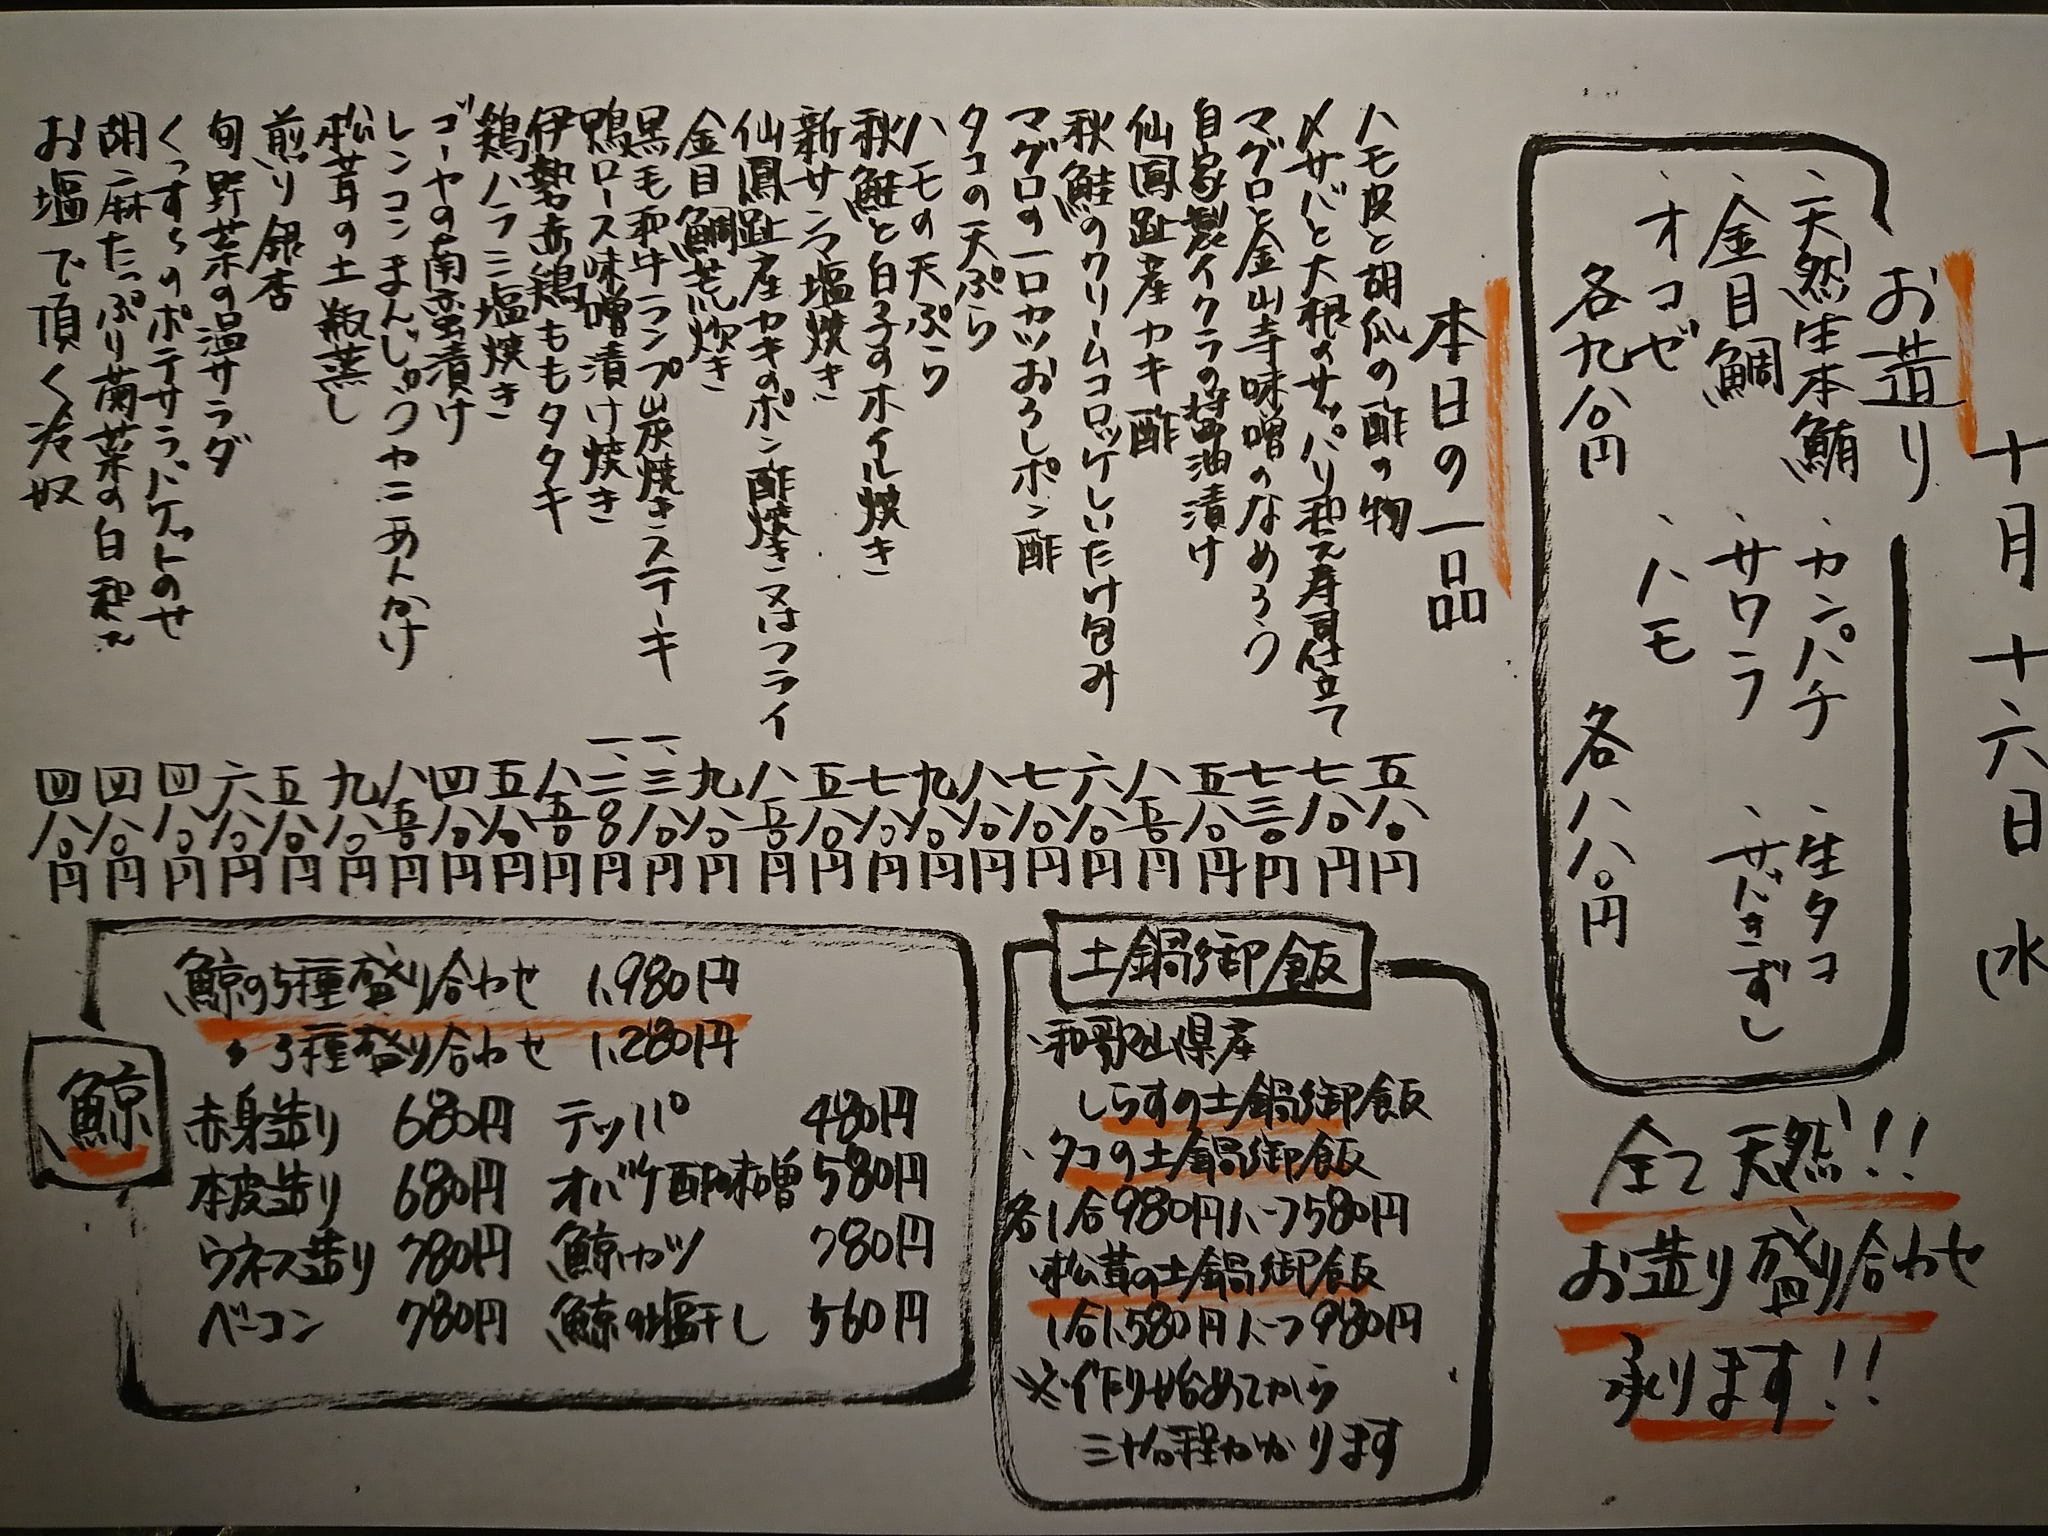 十月十六日(水
お造り
、天然生本鮪 、カンパチ 、生タコ
、金目鯛 、サワラ 、サバきずし
、オコゼ 、ハモ
各九八〇円 各八八〇円
全て天然!!
お造り盛り合わせ
承ります!!
本日の一品
ハモ皮と胡瓜の酢の物 五八〇円
〆サバと大根のサッパリ和え寿司仕立て 七八〇円
マグロと金山寺味噌のなめろう 七三〇円
自家製イクラの醤油漬け 五八〇円
仙鳳趾産カキ酢 八五〇円
秋鮭のクリームコロッケしいたけ包み 六八〇円
マグロの一口カツおろしポン酢 七八〇円
タコの天ぷら 八八〇円
ハモの天ぷら 九八〇円
秋鮭と白子のホイル焼き 七八〇円
新サンマ塩焼き 五八〇円
仙鳳趾産カキのポン酢焼き又はフライ 八五〇円
金目鯛荒炊き 九八〇円
黒毛和牛ランプ炭焼きステーキ 一、三八〇円
鴨ロース味噌漬け焼き 一、二八〇円
伊勢赤鶏ももタタキ 八五〇円
鶏ハラミ塩焼き 五八〇円
ゴーヤの南蛮漬け 四八〇円
レンコンまんじゅうカニあんかけ 八五〇円
松茸の土瓶蒸し 九八〇円
煎り銀杏 五八〇円
旬野菜の温サラダ 六八〇円
くんすらのポテサラバゲットのせ 四八〇円
胡麻たっぷり菊菜の白和え 四八〇円
お塩で頂く冷奴 四八〇円
土鍋御飯
、和歌山県産
しらすの土鍋御飯
、タコの土鍋御飯
各1合980円ハーフ580円
、松茸の土鍋御飯
1合1,580円ハーフ980円
※作り始めてから
三十分程かかります
鯨
鯨の5種盛り合わせ 1,980円
〃3種盛り合わせ 1,280円
赤身造り 680円 テッパ 480円
本皮造り 680円 オバケ酢味噌 580円
ウネス造り 780円 鯨カツ 780円
ベーコン 780円 鯨の塩干し 560円